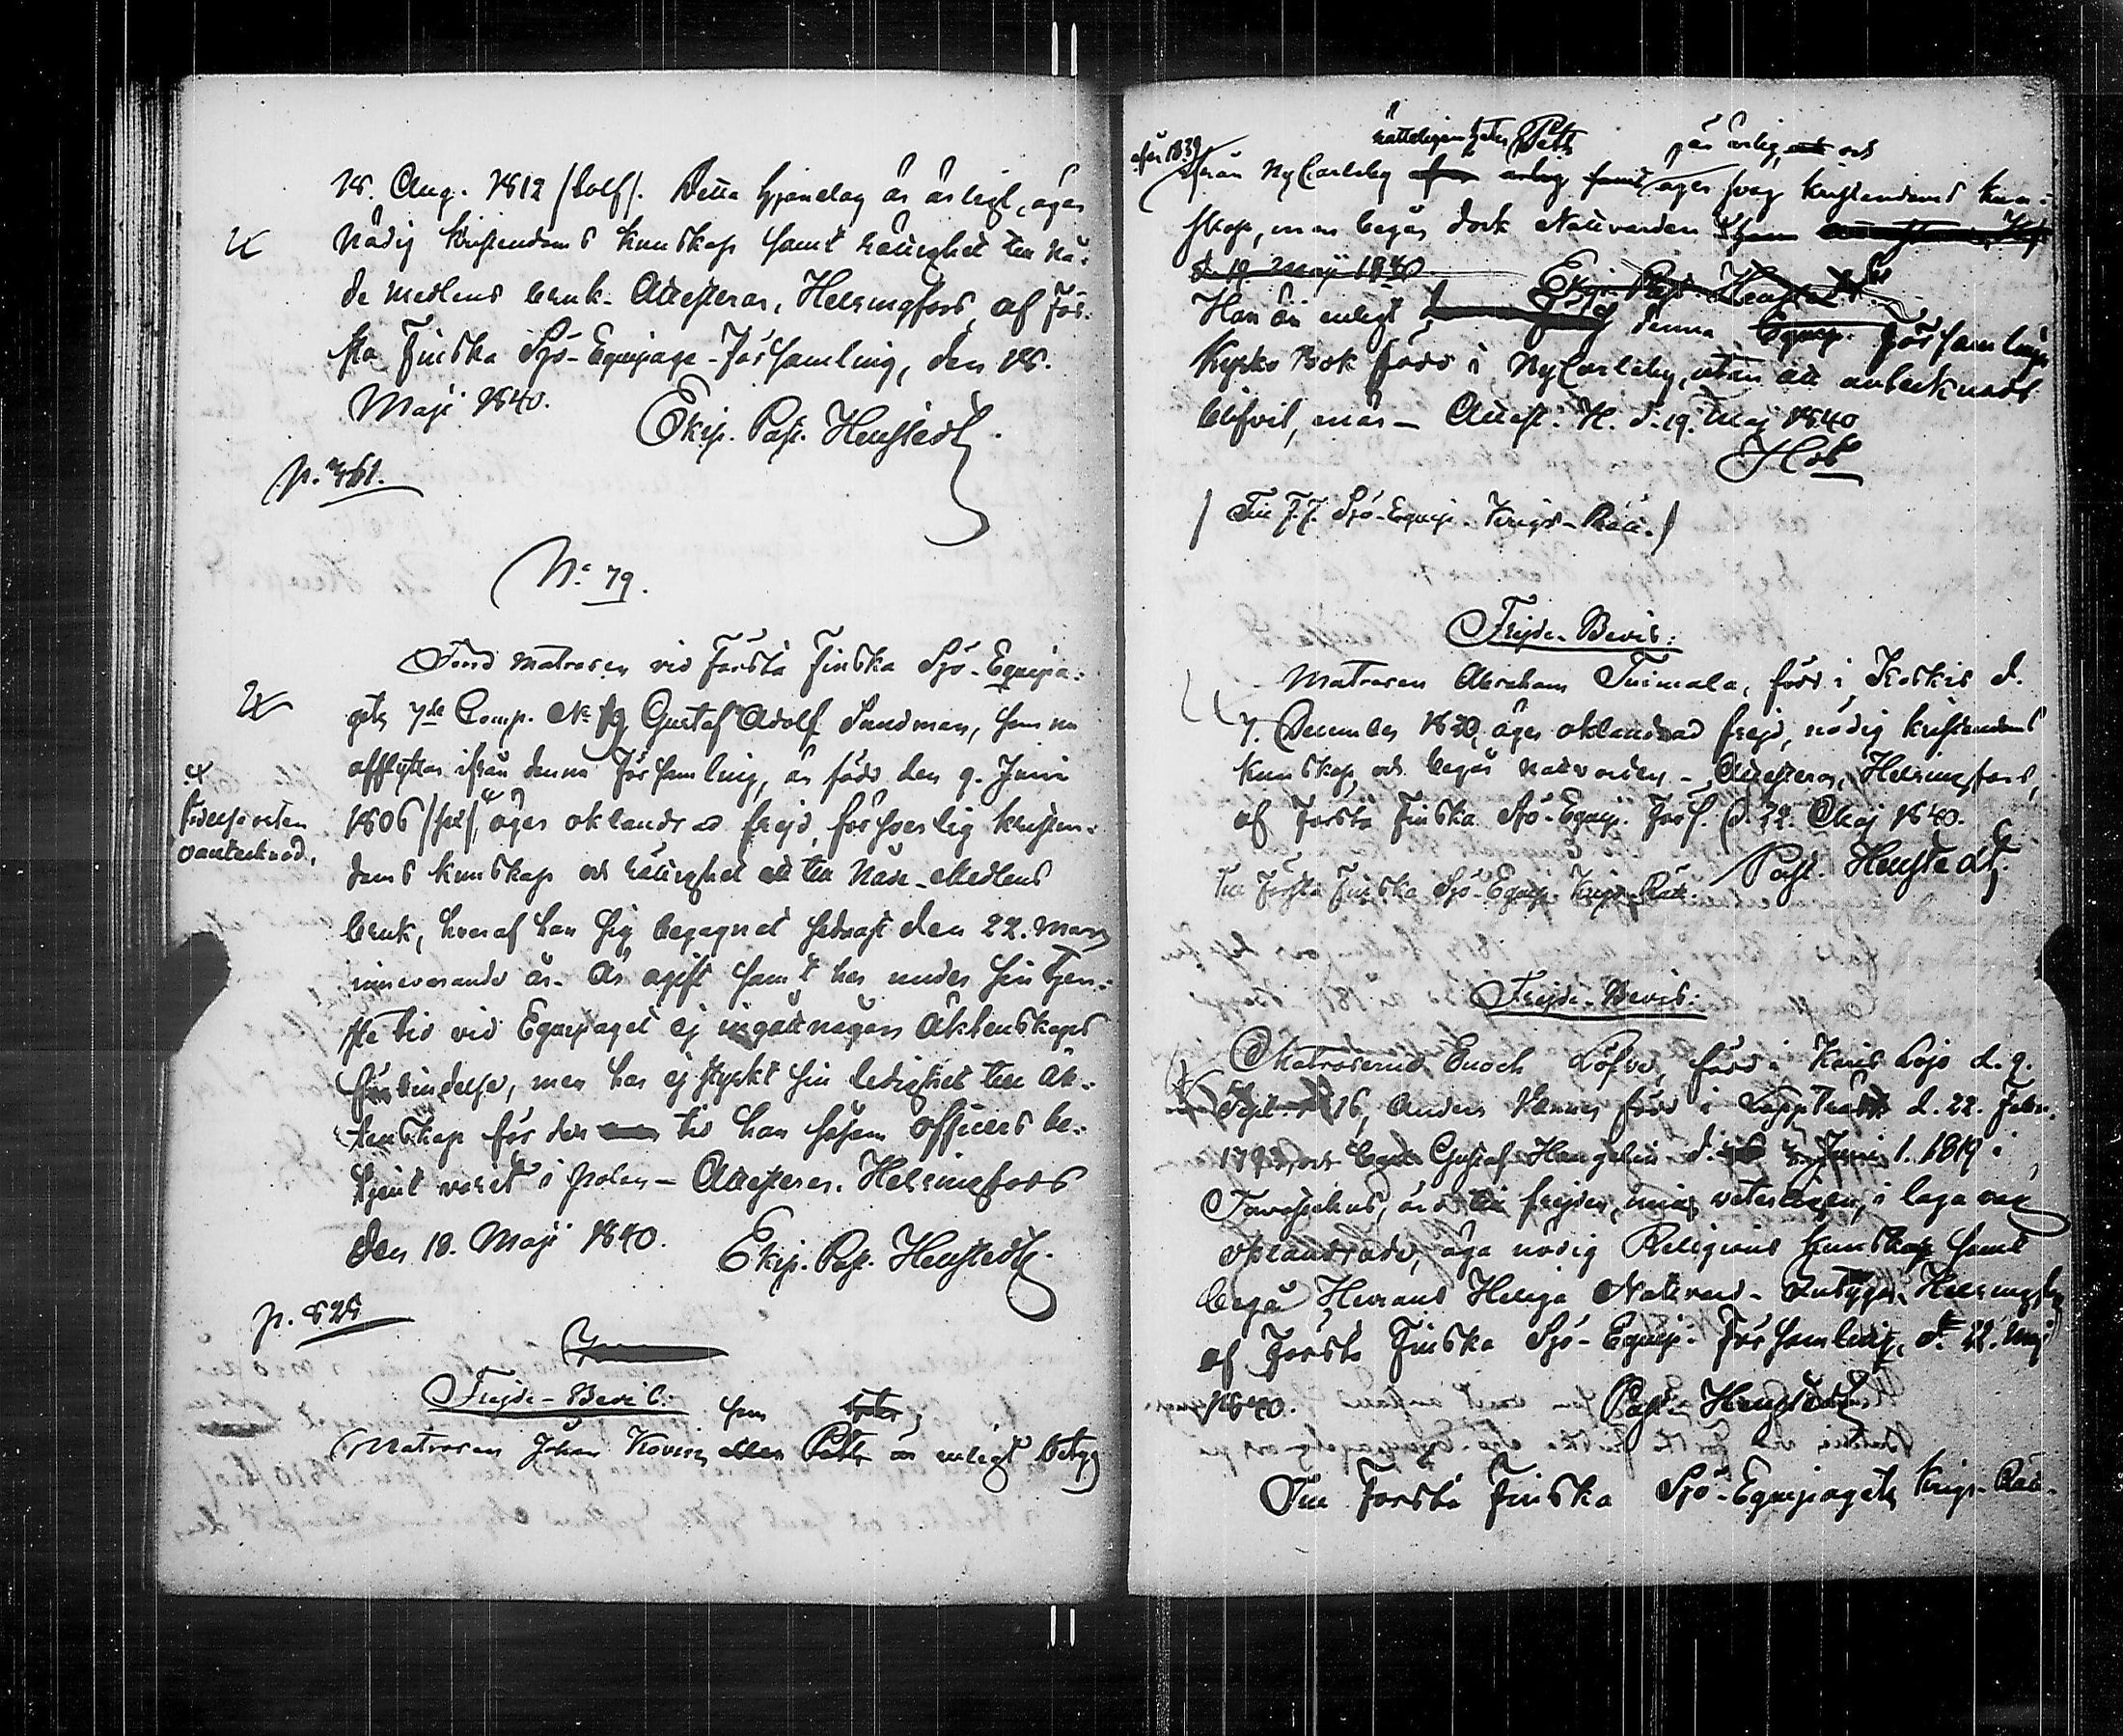 18. Aug. 1812 /tolf/. Detta hjonelag är ärligt, äger
nödig Kristendoms kunskap samt rättighet till Nå-
de medlens bruk. Attesterar, Helsingfors, af För-
sta Finska Sjö-Equipage-Församling, den 18.
Maji 1840.
Ekip. Past. Henstedt.
p. 461.
No 79.
Förrd matrosen vid Första Finska Sjö-Equipa-
gets 7de Comp. No 79 Gustaf Adolf Sandman, som nu
afflyttar ifrån denna Församling, är född den 9. Juni
födelseorten
oantecknad.
1806 /sex/, äger oklandrad frejd, försvarlig kristen-
doms kunskap och rättighet till Nåde-Medlens
bruk, hvaraf han sig begagnat sednast den 22. Mars
innevarande år. Är ogift samt har under sin tjen-
ste tid vid Equipaget ej ingått någon Äktenskaps
förbindelse, men har ej styrkt sin ledighet till Äk-
tenskap för den tid han såsom officers be-
tjent varit i Polen – Attesterar. Helsingfors
den 18. Maji 1840.
Ekip. Past. Henstedt.
p. 525
Frejde-Bevis:
som
Matrosen Johan Kovin eller Pett är enligt betyg
rätteligen heter Pett
går ärlig och
af år 1839
ifrån NyCarleby äger svag kristendoms kun-
skap, men begår dock Nattvarden
d. 19. Maji 1840.
Ekip. Past. Henstedt
Han är enligt denna Equip. Församlings
Kyrko Bok född i NyCarleby, utan att antecknadt
blifvit, når – Attest. H. d. 19. Maj 1840
Hdt
/ Till F. F. Sjö-Equip. Krigs-Rätt. /
Frejde-Bevis:
Matrosen Abraham Tuimala, född i Koskis d.
7. December 1820, äger oklandrad frejd, nödig kristendoms
kunskap och begår nattvarden – Attesterar, Helsingfors,
af Första Finska Sjö-Equip. Förs. d. 22. Maj 1840.
Past. Henstedt.
Till Första Finska Sjö-Equip. Krigs-Rätt.
Frejde-Bevis:
Matroserne Enoch Löfvo, född i Karis Lojo d. 9.
Sept. 16, Anders Venne, född i Lappträsk d. 22. Febr.
och Gustaf Hengelin d. Juni 1. 1819 i
Tavastehus, äro till frejden, mig veterligen, i laga väg
oklandrade, äga nödig Religions kunskap samt
begå Herrans Heliga Nattvard – Intygar, Helsingfors
af Första Finska Sjö-Equip. Församling, d. 22. Maj
1840.
Past. Henstedt
Till Första Finska Sjö-Equipagets Krigs-Rätt.